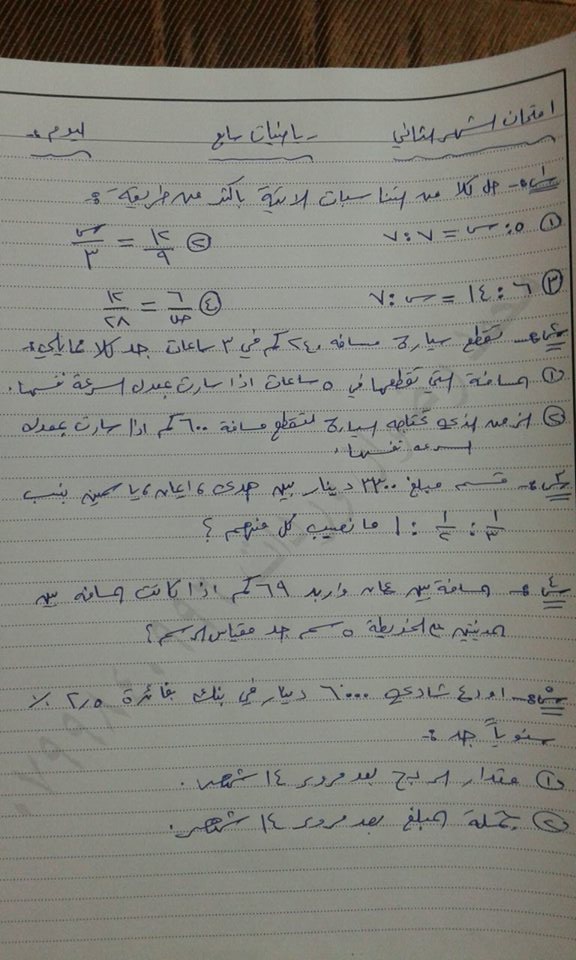 امتحان الشهر الثاني رياضيات سابع اليوم :
س١:- حل كلا من التناسبات الآتية بأكثر من طريقة :
① ٥ : س = ٧ : ٧ ② ١٢/٩ = س/٣
③ ٦ : ١٤ = س : ٧ ④ ٦/ص = ١٢/٢٨
س٢:- تقطع سيارة مسافة ٢٤٠ كم في ٣ ساعات جد كلا مما يلي :
① المسافة التي تقطعها في ٥ ساعات اذا سارت بمعدل السرعة نفسها.
② الزمن الذي تحتاجه السيارة لتقطع مسافة ٦٠٠ كم اذا سارت بمعدل
السرعة نفسها.
س٣:- قسم مبلغ ٣٣٠٠ دينار بين هدى ، ايمان ، ياسمين بنسب
١/٣ : ١/٢ : ١ ما نصيب كل منهم ؟
س٤:- المسافة بين عمان واربد ٦٩ كم اذا كانت المسافة بين
المدينتين على الخريطة ٥ سم جد مقياس الرسم ؟
س٥:- اودع شادي ٦٠٠٠ دينار في بنك بفائدة ٢,٥ ٪
سنوياً جد :
① مقدار الربح بعد مرور ١٤ شهر.
② جملة المبلغ بعد مرور ١٤ شهر.